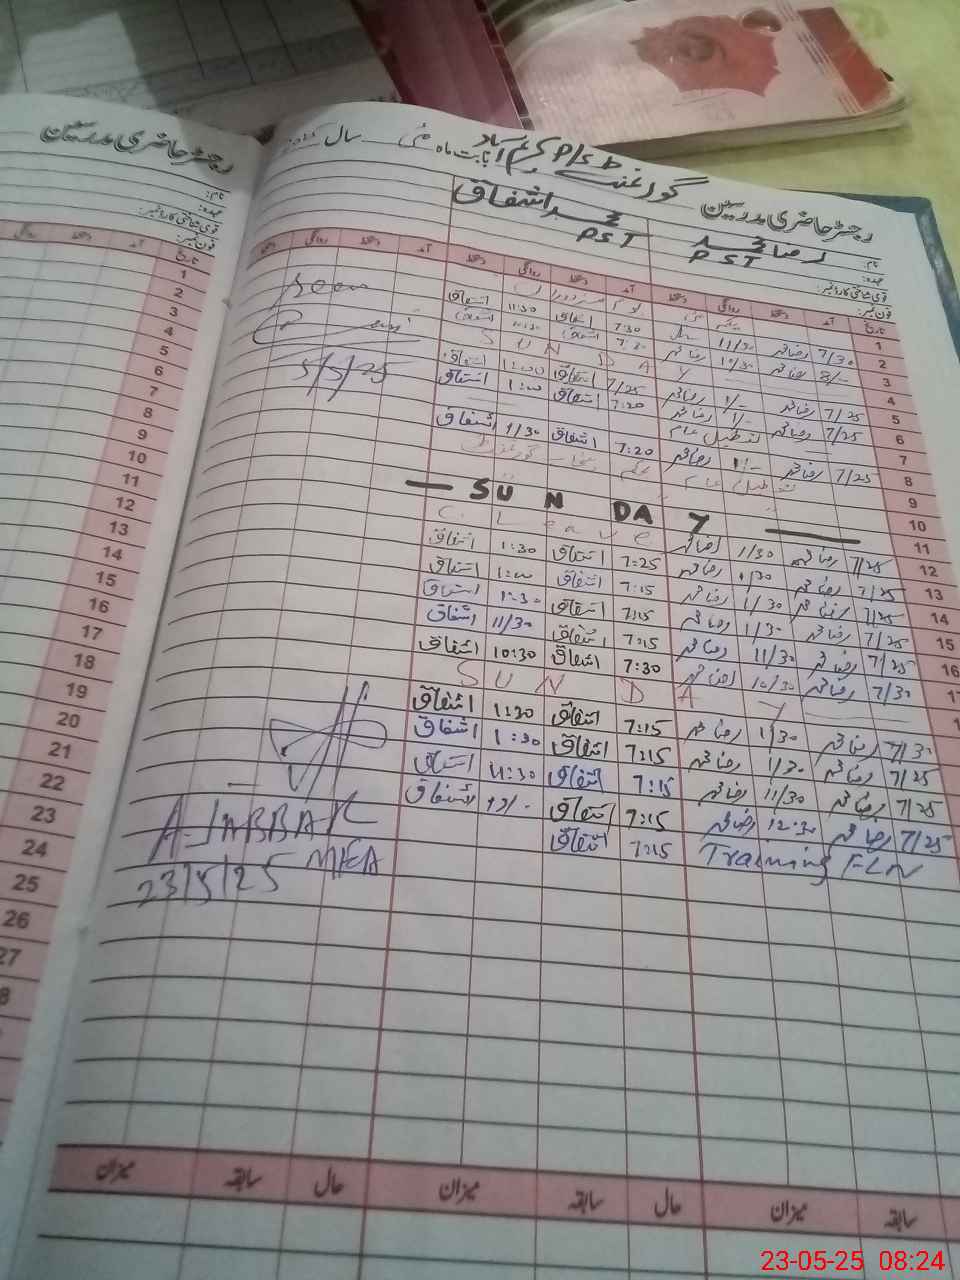 رجسٹر حاضری مدرسین
نام:
عہدہ:
قومی شناختی کارڈ نمبر:
فون نمبر:
تاریخ
1
2
3
4
5
6
7
8
9
10
11
12
13
14
15
16
17
18
19
20
21
22
23
24
25
26
27
رجسٹر حاضری مدرسین گورنمنٹ بابت ماہ مئی سال
نام: رضا محمد محمد اشفاق
عہدہ: PST PST
قومی شناختی کارڈ نمبر:
فون نمبر:
تاریخ آمد دستخط روانگی دستخط آمد دستخط روانگی دستخط آمد دستخط روانگی دستخط
1 7/30 رضا محمد 11/30 7:30 اشفاق 11:30 اشفاق
2 8/- رضا محمد 10/30 رضا محمد اشفاق اشفاق
3 S U N D A Y
4 7/25 رضا محمد 1/- رضا محمد 7/25 اشفاق 1:00 اشفاق
5 7/25 رضا محمد 1/- رضا محمد 7:20 اشفاق 1:00 اشفاق
6 تعطیل عام
7 7/25 رضا محمد 1/- رضا محمد 7:20 اشفاق 1/30 اشفاق
8 تعطیل عام
9
10 — SUN DAY —
11 7/25 رضا محمد 1/30 رضا محمد C. Leave
12 7/25 رضا محمد 1/30 رضا محمد 7:25 اشفاق 1:30 اشفاق
13 7/25 رضا محمد 1/30 رضا محمد 7:15 اشفاق 1:00 اشفاق
14 7/25 رضا محمد 1/30 رضا محمد 7:15 اشفاق 1:30 اشفاق
15 7/25 رضا محمد 11/30 رضا محمد 7:15 اشفاق 11/30 اشفاق
16 7/30 رضا محمد 10/30 رضا محمد 7:30 اشفاق 10:30 اشفاق
17 S U N D A Y
7/30 رضا محمد 1/30 رضا محمد 7:15 اشفاق 1:30 اشفاق
7/25 رضا محمد 1/30 رضا محمد 7:15 اشفاق 1:30 اشفاق
7/25 رضا محمد 11/30 رضا محمد 7:15 اشفاق 11:30 اشفاق
7/25 رضا محمد 12:30 رضا محمد 7:15 اشفاق اشفاق
Training FLN 7:15 اشفاق
5/5/25
A-JABBAR
MEA
23/5/25
سابقہ میزان حال سابقہ میزان حال سابقہ میزان
23-05-25 08:24